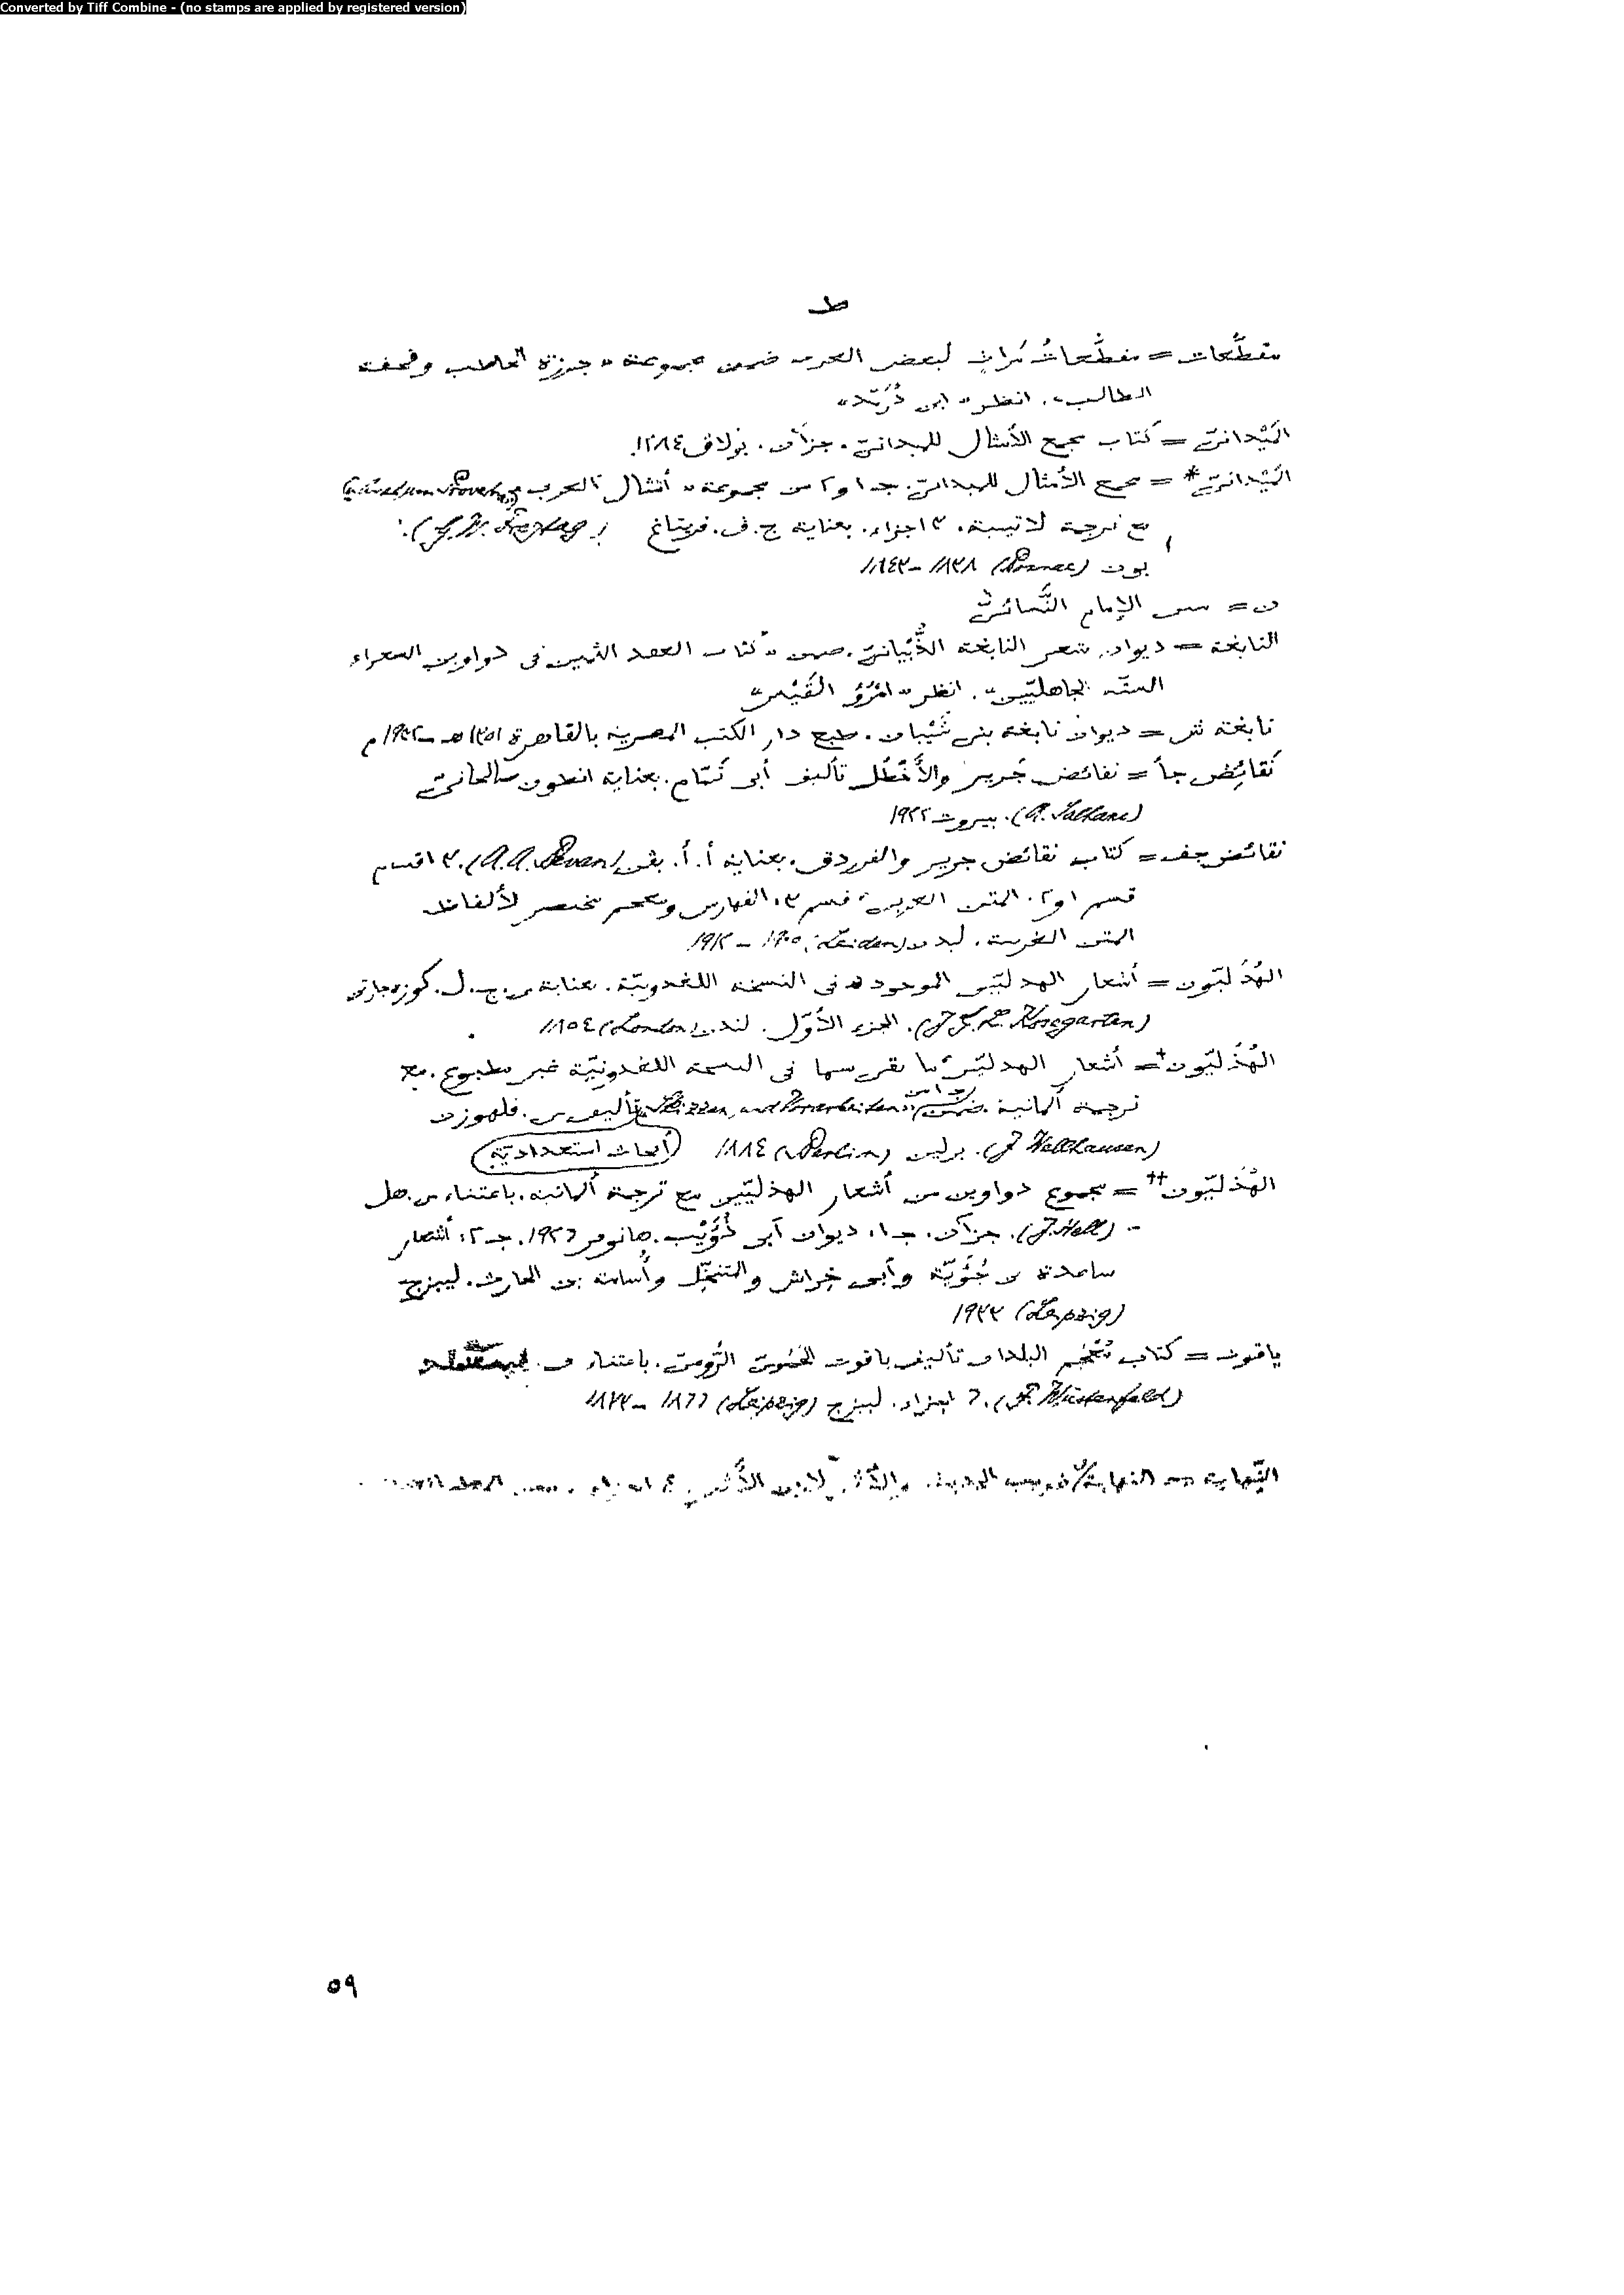 Converted by Tiff Combine - (no stamps are applied by registered version)
ط
مقطّعات = مقطّعاتُ مَراثٍ لبعض العرب ضمن مجموعة « جرزة الحاطب وتحفة
الطالب ». انظر « ابن دُرَيْد »
المَيْدانىّ = كتاب مجمع الأمثال للميدانىّ . جزآن . بولاق ١٢٨٤.
المَيْدانىّ* = مجمع الأمثال للميدانىّ جـ ١ و٢ من مجموعة « أمثال العرب »
مع ترجمة لاتينية. ٣ اجزاء. بعناية ج. ف. فريتاغ (G. W. Freytag).
بون (Bonnae) ١٨٣٨ - ١٨٤٣
ن = سنن الإمام النَّسائىّ
النابغة = ديوان شعر النابغة الذُّبْيانىّ . ضمن « كتاب العقد الثمين فى دواوين الشعراء
الستّة الجاهليّين ». انظر « امْرُؤ القَيْس »
نابغة ش = ديوان نابغة بنى شَيْبان . طبع دار الكتب المصرية بالقاهرة ١٣٥١ هـ - ١٩٣٢ م
نَقائِض جأ = نقائض جَرير والأَخْطَل تأليف أبى تَمّام. بعناية انطون صالحانىّ
(A. Salhani). بيروت ١٩٢٢
نقائض جف = كتاب نقائض جرير والفرزدق. بعناية أ. أ. بڤن (A. A. Bevan). ٣ اقسام
قسم ١ و٢: المتن العربى، قسم ٣: الفهارس ومعجم مختصر لألفاظ
المتن الغريبة. ليدن (Leiden) ١٩٠٥ - ١٩١٢
الهُذَليّون = أشعار الهذليّين الموجودة فى النسخة اللغدونيّة . بعناية ى. ج. ل. كوزه جارتن
(J. G. L. Kosegarten). الجزء الأوّل. لندن (London) ١٨٥٤
الهُذَليّون⁺ = أشعار الهذليّين ما بقى منها فى النسخة اللغدونيّة غير مطبوع. مع
ترجمة ألمانية. ضمن جـ ١ من (Skizzen und Vorarbeiten) تأليف ى. فلهوزن
(J. Wellhausen). برلين (Berlin) ١٨٨٤ (أبحاث استعداديّة)
الهُذَليّون⁺⁺ = مجموع دواوين من أشعار الهذليّين مع ترجمة ألمانية. باعتناء ى. هل
(J. Hell). جزآن. جـ ١: ديوان أبى ذُؤَيْب. هانوفر ١٩٢٦. جـ ٢: أشعار
ساعدة بن جُؤَيّة وأبى خِراش والمتنخِّل وأُسامة بن الحارث. ليبزج
(Leipzig) ١٩٣٣
ياقوت = كتاب مُعْجَم البلدان تأليف ياقوت الحَمَوىّ الرُّومىّ. باعتناء ف.
(F. Wüstenfeld). ٦ اجزاء. ليبزج (Leipzig) ١٨٦٦ - ١٨٧٣
النِّهاية = النهاية فى غريب الحديث والأثر لابن الأثير
٥٩